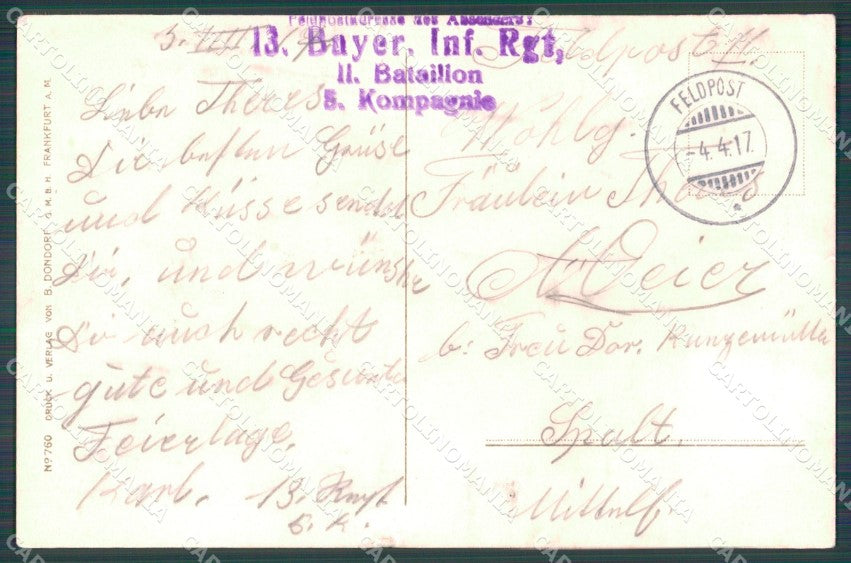 Feldpostadresse des Absenders:
13. Bayer. Inf. Rgt,
II. Bataillon
5. Kompagnie
Feldpost II.
FELDPOST
-4.4.17.
Liebe Theres
Die besten Grüse
und Küsse sendet
Dir, und wünsche
Dir auch recht
gute und Gesunde
Feiertage.
Karl. 13.
5. K.
Wohlg.
Fräulein Theres
Meier
b: Frau Dor. Kunzemüller
Spalt.
Mittelf
No 760 DRUCK U. VERLAG VON B. DONDORF G.M.B.H. FRANKFURT A.M.
CARTOLINOMANIA